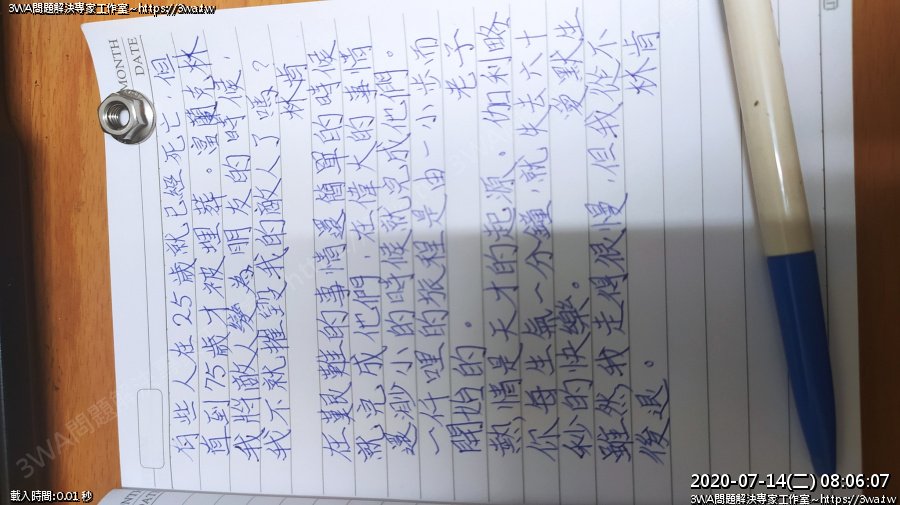 3WA問題解決專家工作室~https://3wa.tw
MONTH
DATE
有些人在25歲就已經死亡，但
直到75歲才被埋葬。富蘭克林
我將敵人變為朋友的時候，
我不就摧毀我的敵人了嗎？
林肯
在艱難的事情還簡單的時候
就完成他們，在偉大的事情
還渺小的時候就完成他們。
一仟哩的旅程是由一小步而
開始的。 老子
熱情是天才的起源。 伽利略
你每生氣一分鐘，就失去六十
秒的快樂。 愛默生
雖然我走得很慢，但我從不
後退。 林肯
載入時間:0.01 秒
2020-07-14(二) 08:06:07
3WA問題解決專家工作室~https://3wa.tw